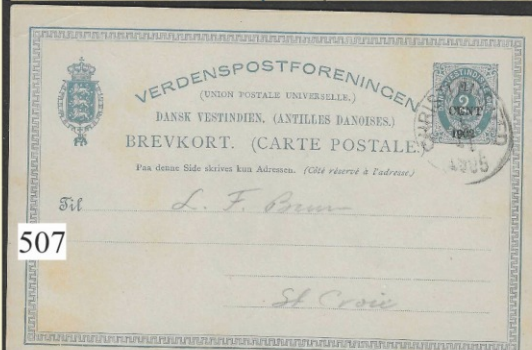 VERDENSPOSTFORENINGEN
(UNION POSTALE UNIVERSELLE.)
DANSK VESTINDIEN. (ANTILLES DANOISES.)
BREVKORT. (CARTE POSTALE.)
Paa denne Side skrives kun Adressen. (Côté réservé à l'adresse.)
2
CENT
1902
Til L. F.
507
St Croix